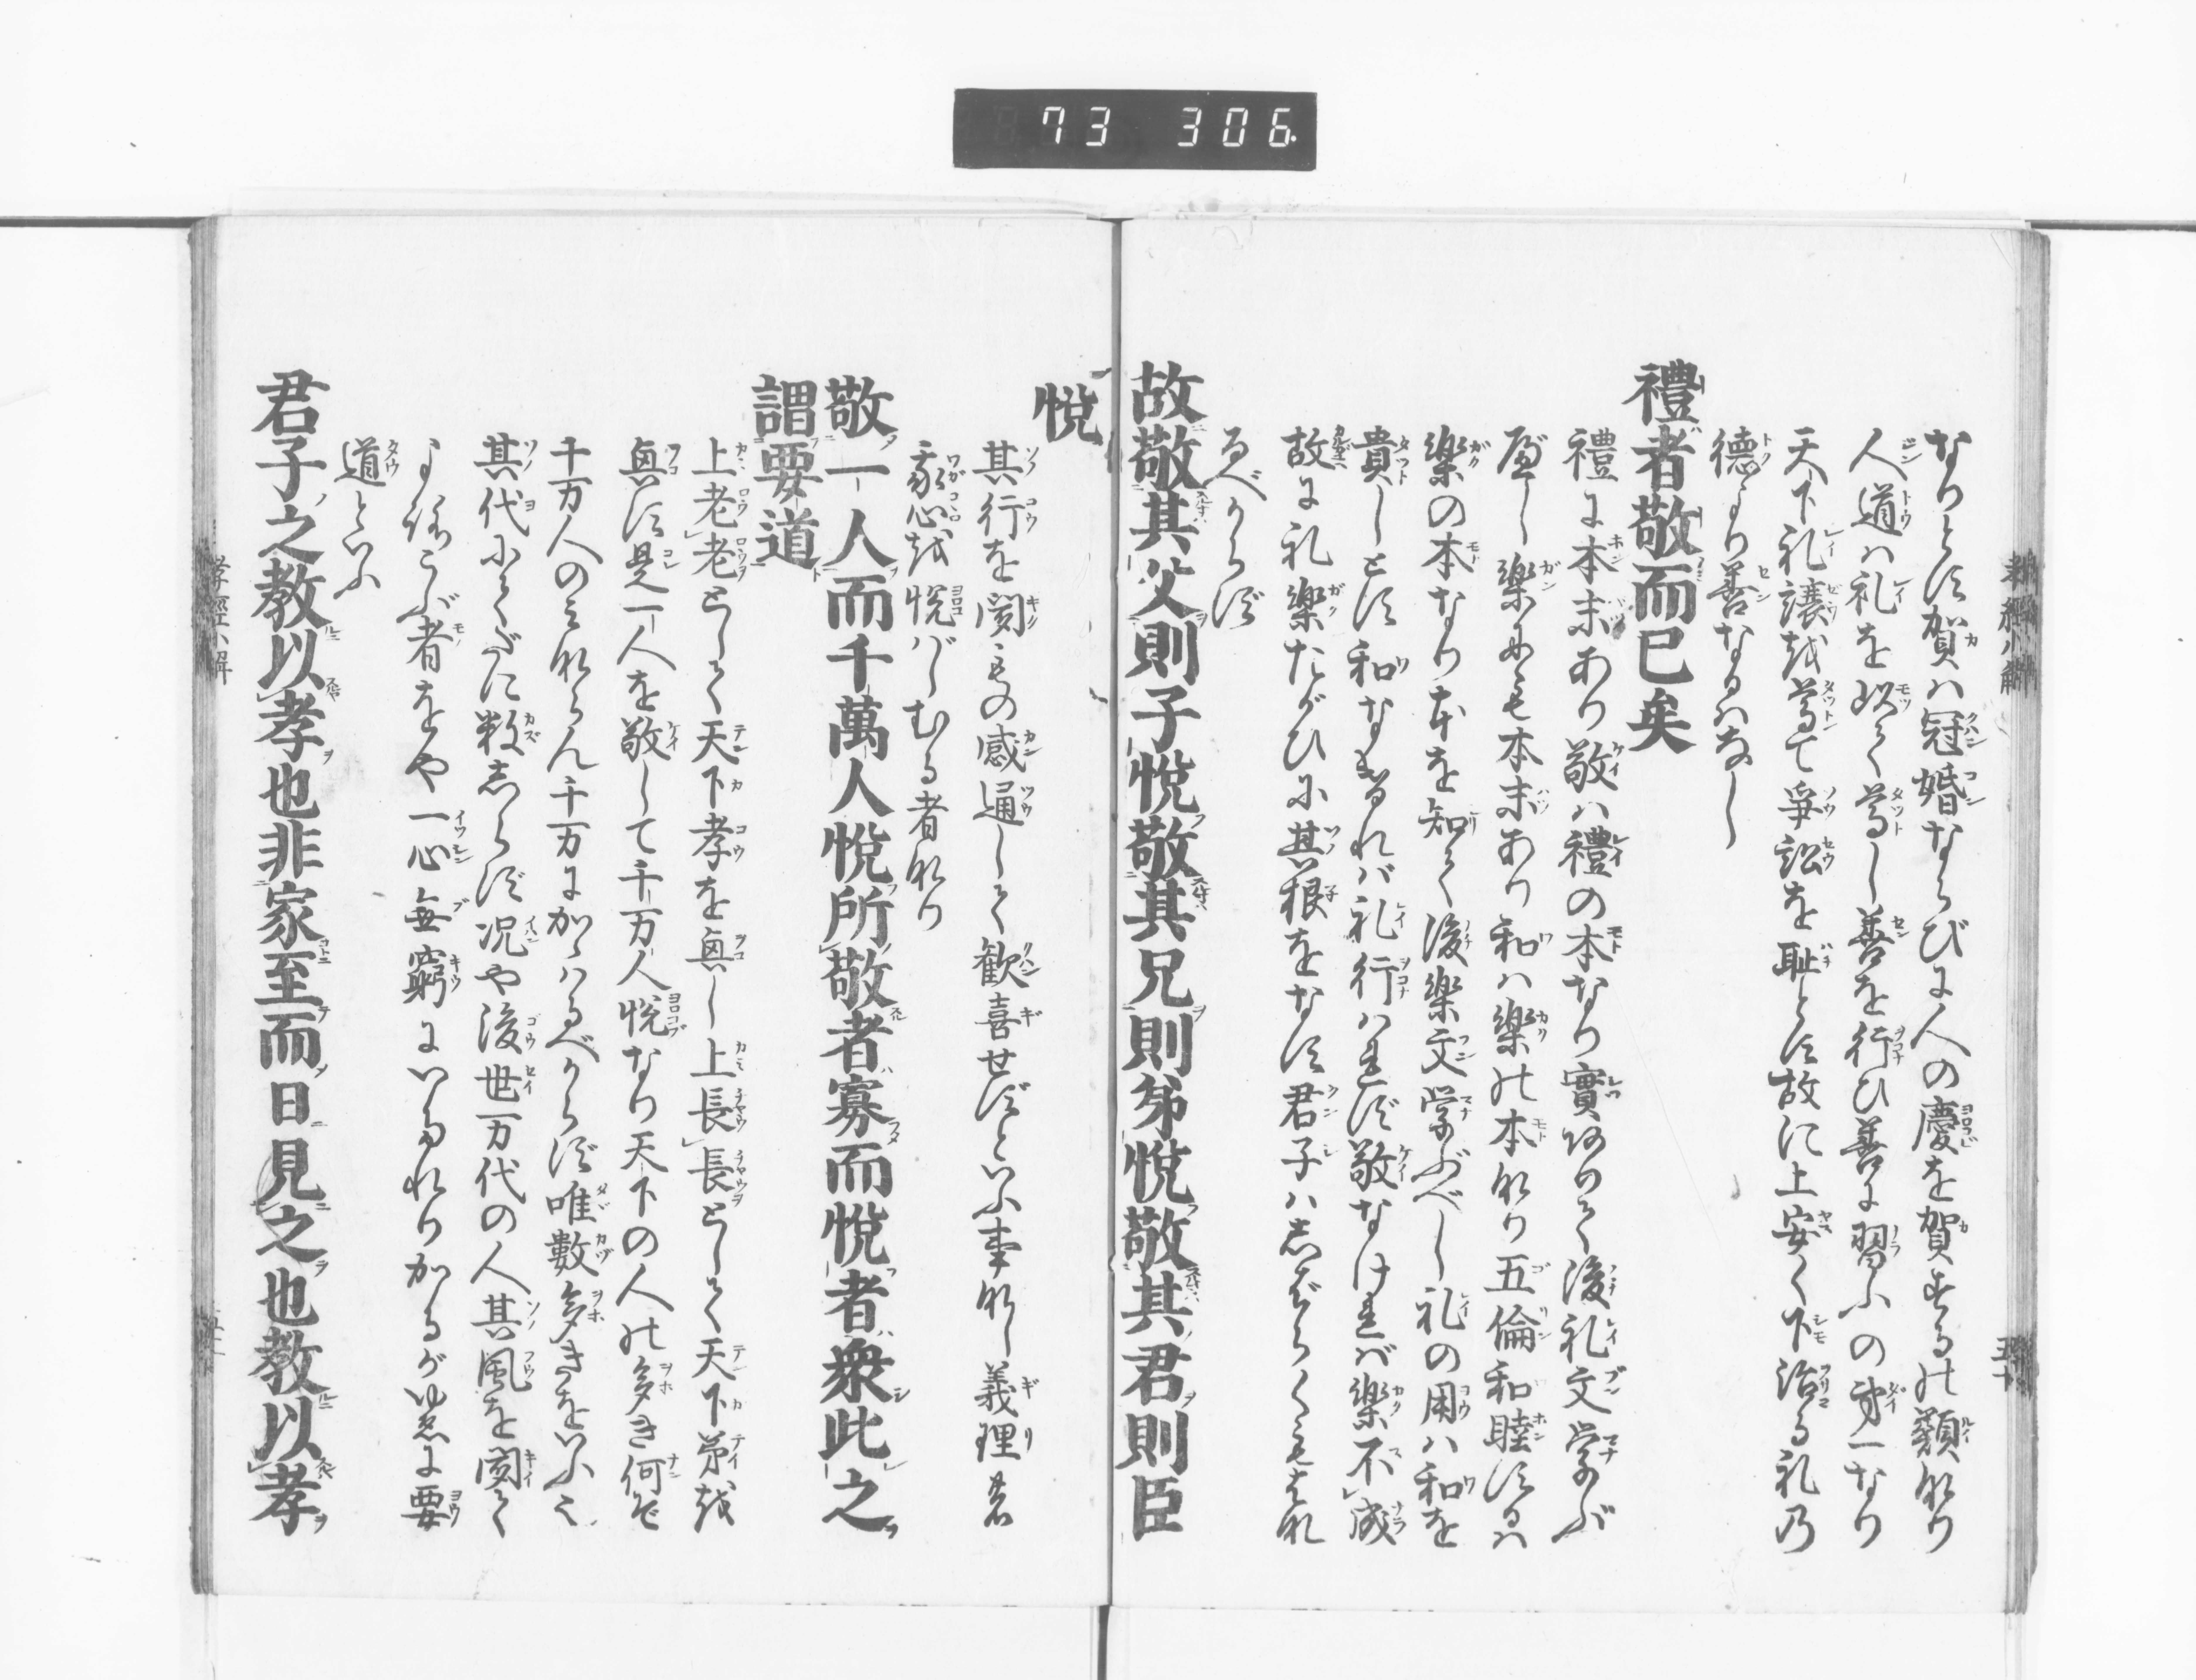 73 306.
なりとす賀は冠婚ならびに人の慶を賀するの類なり
人道は礼を以て尊し善を行ひ善に習ふの第一なり
天下礼譲を尊て爭訟を恥とす故に上安く下治る礼乃
徳より善なるはなし
禮者敬而已矣
禮に本末あり敬は禮の本なり實ありて後礼文学ぶ
べし楽にも本末あり和は楽の本なり五倫和睦するは
楽の本なり本を知て後楽文学ぶべし礼の用は和を
貴しとす和なければ礼行はれず敬なければ楽不成
故に礼楽たがひに其根をなす君子はしばらくもはな
るべからず
故敬其父則子悦敬其兄則弟悦敬其君則臣
悦
其行を聞もの感通して歓喜せずといふ事なし義理の
我心を悦ばしむる者なり
敬一人而千萬人悦所敬者寡而悦者衆此之
謂要道
上老老として天下孝を興し上長長として天下弟を
興す是一人を敬して千万人悦なり天下の人の多き何ぞ
千万人のみならん千万にかゝはるべからず唯數多きをいふ
其代にてだに数しらず况や後世万代の人其風を聞て
よろこぶ者をや一心無窮にいたれりかるが故に要
道といふ
君子之教以孝也非家至而日見之也教以孝